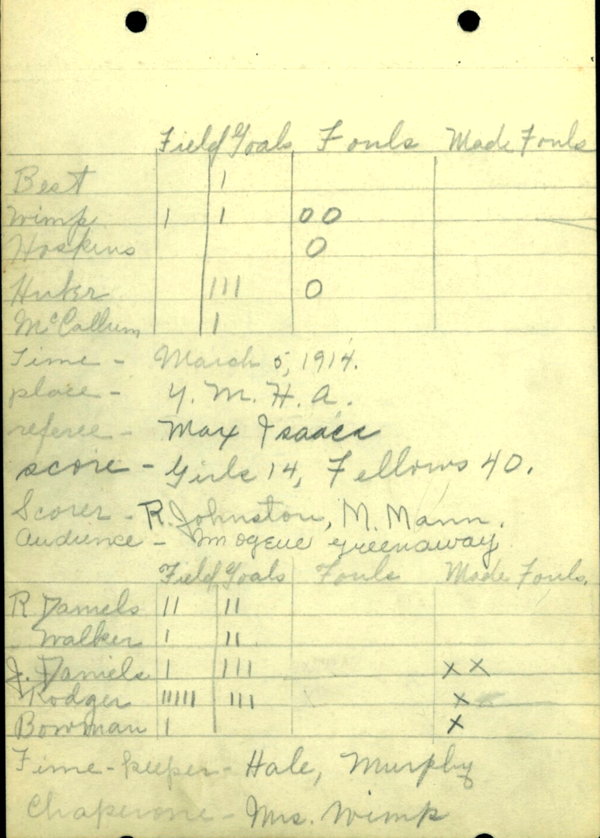 Field Goals Fouls Made Fouls
Best | 
Wimp | | 00
Hoskins 0
Huber ||| 0
McCallum |
Time - March 5, 1914.
place - Y. M. H. A.
referee - Max Isaacs
score - Girls 14, Fellows 40.
Scorer - R. Johnston, M. Mann.
Audience - Imogene Greenaway
Field Goals Fouls Made Fouls.
R Daniels || ||
Walker | ||
J. Daniels | ||| x x
Rodger ||||| ||| x
Bowman | x
Time-keeper - Hale, Murphy
Chaperone - Mrs. Wimp